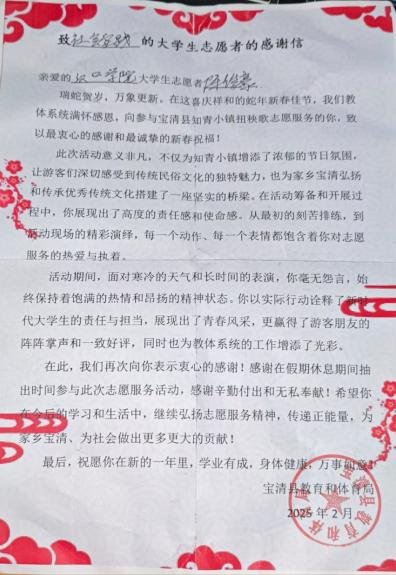 致社会实践的大学生志愿者的感谢信
亲爱的汉口学院大学生志愿者
瑞蛇贺岁，万象更新。在这喜庆祥和的蛇年新春佳节，我们教
体系统满怀感恩，向参与宝清县知青小镇扭秧歌志愿服务的你，致
以最衷心的感谢和最诚挚的新春祝福！
此次活动意义非凡，不仅为知青小镇增添了浓郁的节日氛围，
让游客们深切感受到传统民俗文化的独特魅力，也为家乡宝清弘扬
和传承优秀传统文化搭建了一座坚实的桥梁。在活动筹备和开展过
程中，你展现出了高度的责任感和使命感。从最初的刻苦排练，到
活动现场的精彩演绎，每一个动作、每一个表情都饱含着你对志愿
服务的热爱与执着。
活动期间，面对寒冷的天气和长时间的表演，你毫无怨言，始
终保持着饱满的热情和昂扬的精神状态。你以实际行动诠释了新时
代大学生的责任与担当，展现出了青春风采，更赢得了游客朋友的
阵阵掌声和一致好评，同时也为教体系统的工作增添了光彩。
在此，我们再次向你表示衷心的感谢！感谢在假期休息期间抽
出时间参与此次志愿服务活动，感谢辛勤付出和无私奉献！希望你
在今后的学习和生活中，继续弘扬志愿服务精神，传递正能量，为
家乡宝清、为社会做出更多更大的贡献！
最后，祝愿你在新的一年里，学业有成，身体健康，万事如意！
宝清县教育和体育局
2025年2月
宝清县教育和体育局